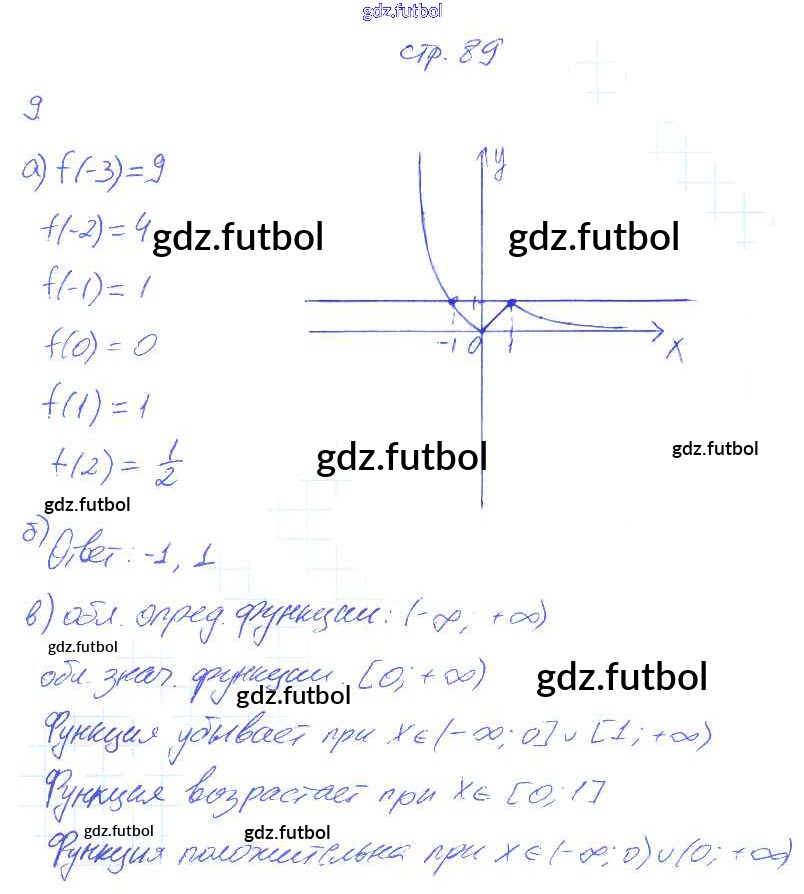 gdz.futbol
стр. 89
9
а) f(-3)=9
f(-2)=4
gdz.futbol
gdz.futbol
f(-1)=1
f(0)=0
f(1)=1
f(2)=1/2
y
1
-1 0 1 x
gdz.futbol
gdz.futbol
gdz.futbol
б) Ответ: -1, 1
в) обл. опред. функции: (-∞; +∞)
gdz.futbol
обл. знач. функции. [0; +∞)
gdz.futbol
gdz.futbol
Функция убывает при x∈(-∞; 0]∪[1; +∞)
Функция возрастает при x∈[0; 1]
gdz.futbol
gdz.futbol
Функция положительна при x∈(-∞; 0)∪(0; +∞)